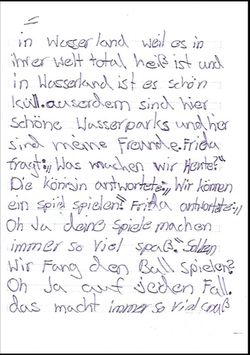 in Wasserland weil es in
ihrer welt total heiß ist und
in Wasserland ist es schön
küll. auserdem sind hier
schöne Wasserparks und hier
sind meine Freunde. Frida
fragt:„Was machen wir Heute?"
Die königin antwortete:„Wir können
ein spiel spielen." Frida antwortete:„
Oh Ja deine spiele machen
immer so viel spaß." Sollen
Wir Fang den Ball spielen?"
Oh Ja auf jeden Fall.
das macht immer so viel spaß